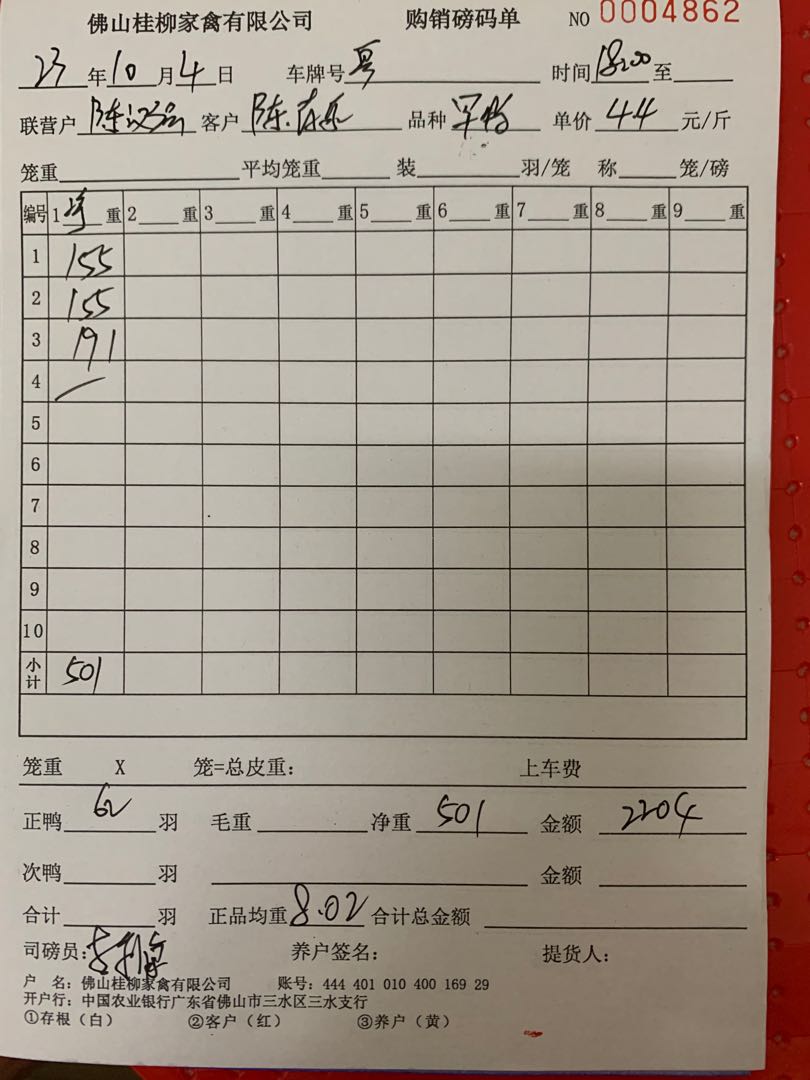 佛山桂柳家禽有限公司 购销磅码单 NO 0004862
23 年 10 月 4 日 车牌号 时间 18:00 至
联营户 陈 客户 陈 品种 单价 44 元/斤
笼重 平均笼重 装 羽/笼 称 笼/磅
编号 1 重 2 重 3 重 4 重 5 重 6 重 7 重 8 重 9 重
1 155
2 155
3 191
4
5
6
7
8
9
10
小计 501
笼重 X 笼=总皮重: 上车费
正鸭 62 羽 毛重 净重 501 金额 2204
次鸭 羽 金额
合计 羽 正品均重 8.02 合计总金额
司磅员: 养户签名: 提货人:
户 名: 佛山桂柳家禽有限公司 账号: 444 401 010 400 169 29
开户行: 中国农业银行广东省佛山市三水区三水支行
①存根(白) ②客户(红) ③养户(黄)